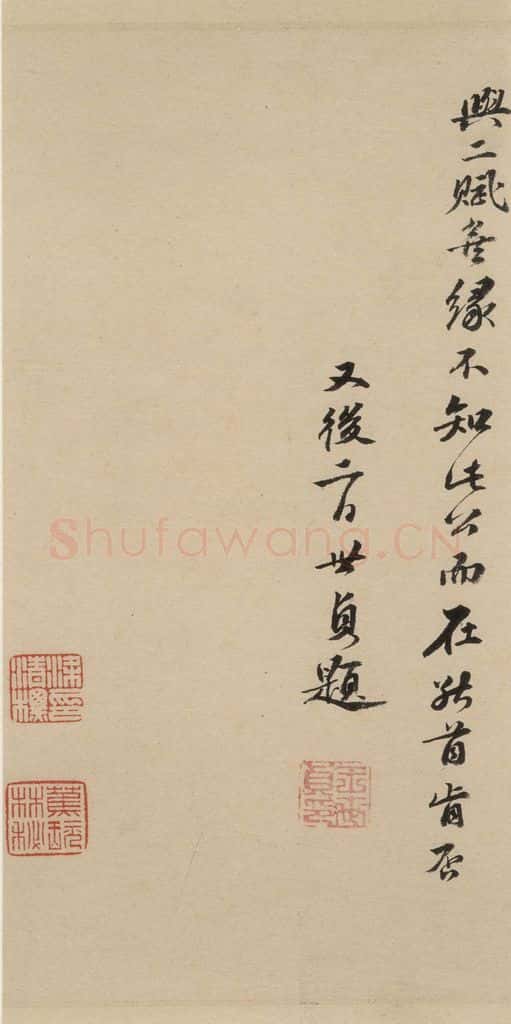 與二賦無緣不知此公而在能首肯否
又後二日世貞題
Shufawang.CN